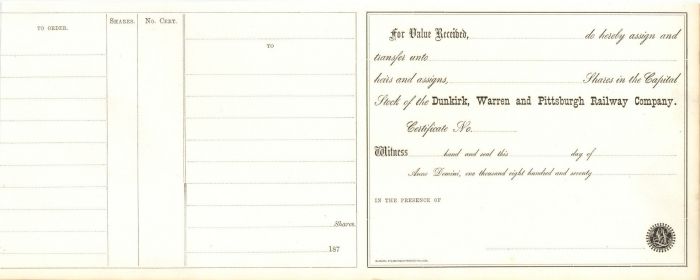 TO ORDER.
SHARES.
NO. CERT.
TO
Shares.
187
For Value Received, do hereby assign and
transfer unto
heirs and assigns, Shares in the Capital
Stock of the Dunkirk, Warren and Pittsburgh Railway Company.
Certificate No.
Witness hand and seal this day of
Anno Domini, one thousand eight hundred and seventy
IN THE PRESENCE OF